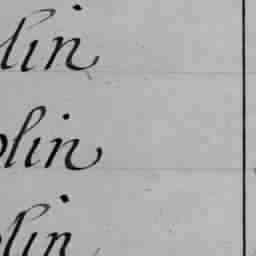 lin
olin
olin